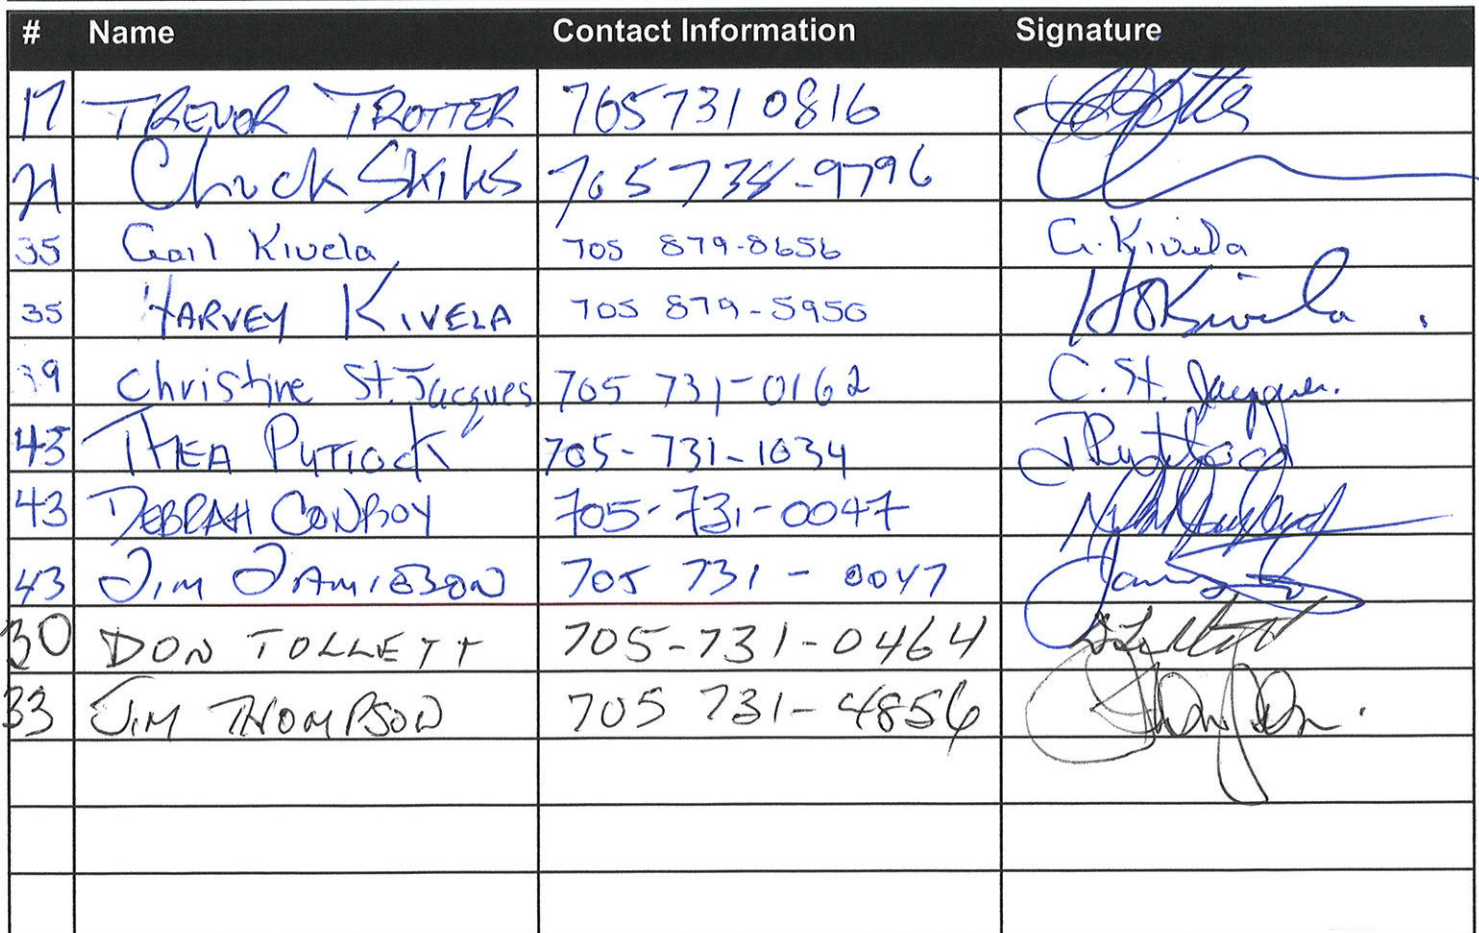 # Name Contact Information Signature
17 TREVOR TROTTER 705 731 0816
21 Chuck Skiles 705 738-9796
35 Gail Kivela 705 879-8656 G. Kivela
35 HARVEY KIVELA 705 879-5950 H Kivela
39 Christine St. Jacques 705 731-0162 C. St. Jacques.
43 THEA PUTTOCK 705-731-1034
43 DEBRAH CONROY 705-731-0047
43 JIM JAMIESON 705 731-0047
30 DON TOLLETT 705-731-0464
33 JIM THOMPSON 705 731-4856